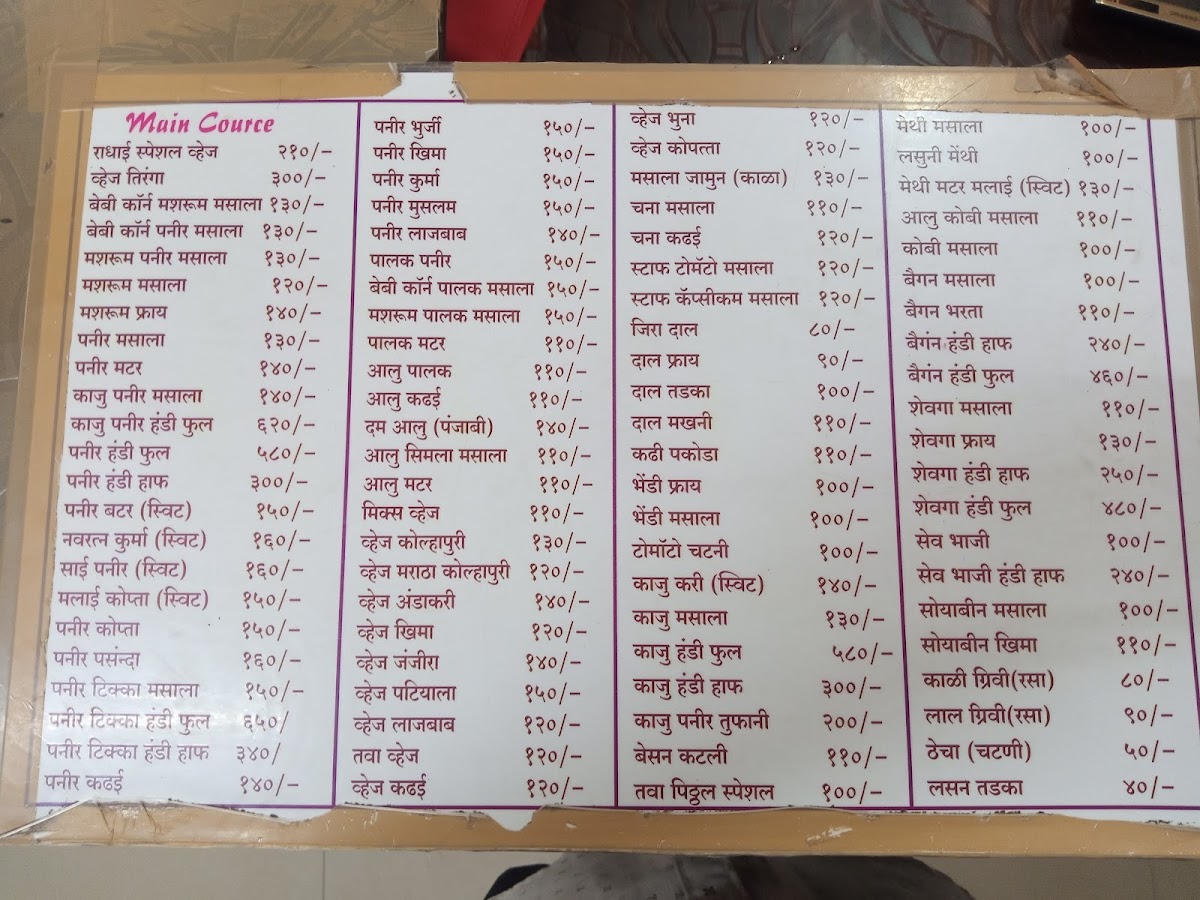 Main Cource
राधाई स्पेशल व्हेज २१०/-
व्हेज तिरंगा ३००/-
बेबी कॉर्न मशरूम मसाला १३०/-
बेबी कॉर्न पनीर मसाला १३०/-
मशरूम पनीर मसाला १३०/-
मशरूम मसाला १२०/-
मशरूम फ्राय १४०/-
पनीर मसाला १३०/-
पनीर मटर १४०/-
काजु पनीर मसाला १४०/-
काजु पनीर हंडी फुल ६२०/-
पनीर हंडी फुल ५८०/-
पनीर हंडी हाफ ३००/-
पनीर बटर (स्विट) १५०/-
नवरत्न कुर्मा (स्विट) १६०/-
साई पनीर (स्विट) १६०/-
मलाई कोप्ता (स्विट) १५०/-
पनीर कोप्ता १५०/-
पनीर पसंन्दा १६०/-
पनीर टिक्का मसाला १५०/-
पनीर टिक्का हंडी फुल ६५०/
पनीर टिक्का हंडी हाफ ३४०/
पनीर कढई १४०/-
पनीर भुर्जी १५०/-
पनीर खिमा १५०/-
पनीर कुर्मा १५०/-
पनीर मुसलम १५०/-
पनीर लाजबाब १४०/-
पालक पनीर १५०/-
बेबी कॉर्न पालक मसाला १५०/-
मशरूम पालक मसाला १५०/-
पालक मटर ११०/-
आलु पालक ११०/-
आलु कढई ११०/-
दम आलु (पंजाबी) १४०/-
आलु सिमला मसाला ११०/-
आलु मटर ११०/-
मिक्स व्हेज ११०/-
व्हेज कोल्हापुरी १३०/-
व्हेज मराठा कोल्हापुरी १२०/-
व्हेज अंडाकरी १४०/-
व्हेज खिमा १२०/-
व्हेज जंजीरा १४०/-
व्हेज पटियाला १५०/-
व्हेज लाजबाब १२०/-
तवा व्हेज १२०/-
व्हेज कढई १२०/-
व्हेज भुना १२०/-
व्हेज कोपत्ता १२०/-
मसाला जामुन (काळा) १३०/-
चना मसाला ११०/-
चना कढई १२०/-
स्टाफ टोमॅटो मसाला १२०/-
स्टाफ कॅप्सीकम मसाला १२०/-
जिरा दाल ८०/-
दाल फ्राय ९०/-
दाल तडका १००/-
दाल मखनी ११०/-
कढी पकोडा ११०/-
भेंडी फ्राय १००/-
भेंडी मसाला १००/-
टोमॉटो चटनी १००/-
काजु करी (स्विट) १४०/-
काजु मसाला १३०/-
काजु हंडी फुल ५८०/-
काजु हंडी हाफ ३००/-
काजु पनीर तुफानी २००/-
बेसन कटली ११०/-
तवा पिठ्ठल स्पेशल १००/-
मेथी मसाला १००/-
लसुनी मेंथी १००/-
मेथी मटर मलाई (स्विट) १३०/-
आलु कोबी मसाला ११०/-
कोबी मसाला १००/-
बैगन मसाला १००/-
बैगन भरता ११०/-
बैगंन हंडी हाफ २४०/-
बैगंन हंडी फुल ४६०/-
शेवगा मसाला ११०/-
शेवगा फ्राय १३०/-
शेवगा हंडी हाफ २५०/-
शेवगा हंडी फुल ४८०/-
सेव भाजी १००/-
सेव भाजी हंडी हाफ २४०/-
सोयाबीन मसाला १००/-
सोयाबीन खिमा ११०/-
काळी ग्रिवी(रसा) ८०/-
लाल ग्रिवी(रसा) ९०/-
ठेचा (चटणी) ५०/-
लसन तडका ४०/-